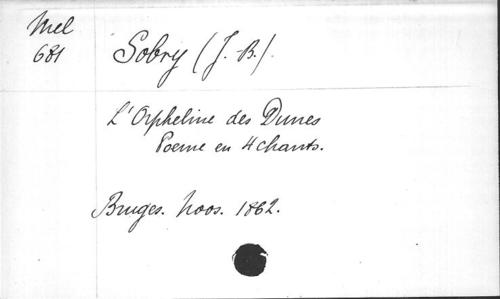 Mel
681
Sobry (J. B.).
L'Orpheline des Dunes
Poeme en 4 chants.
Bruges. Noos. 1862.